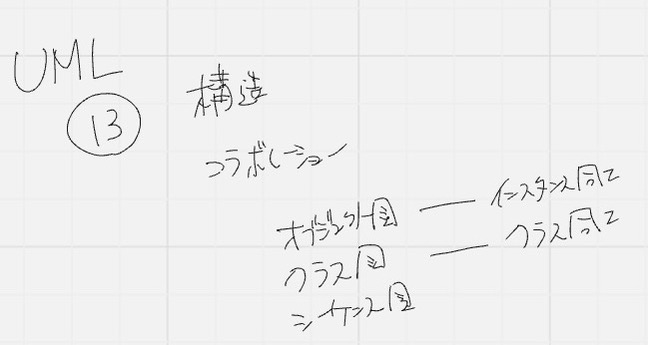 UML
13
構造
コラボレーション
オブジェクト図 ― インスタンス同士
クラス図 ― クラス同士
シーケンス図